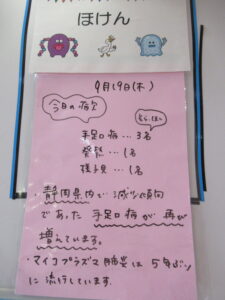 ほけん
9月19日(木)
今日の病欠
手足口病…3名
発熱…1名
様子見…1名
・静岡県内で減少傾向
であった手足口病が再び
増えています。
・マイコプラズマ肺炎は5年ぶり
に流行しています。